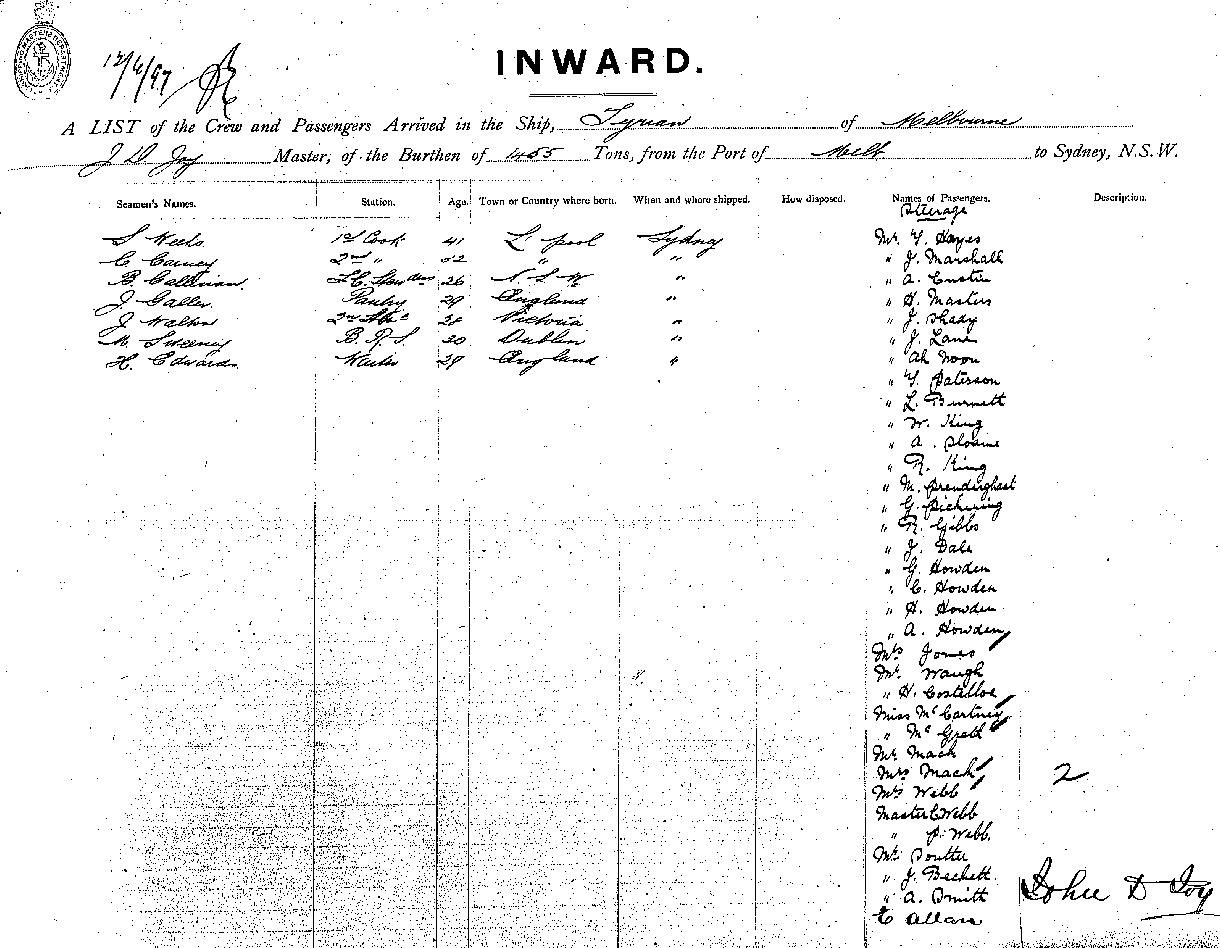 12/4/97
INWARD.
A LIST of the Crew and Passengers Arrived in the Ship, Tyrian of Melbourne
J D Joy Master, of the Burthen of 1455 Tons, from the Port of Melb to Sydney, N.S.W.
Seamen's Names. Station. Age. Town or Country where born. When and where shipped. How disposed. Names of Passengers. Description.
Steerage
S Weeks 1st Cook 41 L'pool Sydney Mr. Y. Hayes
C Carney 2nd " 52 " " " J. Marshall
B. Callinan. 26 N S W " " A.
J. Galler Pantry 29 England " " H. Masters
J Walton 28 Victoria " " J. Shady
M. Sweeney B.R.S. 30 Dublin " " J. Lane
H. Edwards Waiter 29 England " " Ah Noon
" Y. Paterson
" L. Burnett
" W. King
" A. Sloane
" R. King
" M. Prendinghast
" G. Pickering
" R. Gibbs
" J. Dale
" G. Howden
" C. Howden
" H. Howden
" A. Howden
Mrs Jones
Mr. Waugh
" H. Costelloe
Miss McCartney
" McGrath
Mr Mack
Mrs Mack 2
Mrs Webb
Master C Webb
" P. Webb.
Mr
" J. Beckett.
" A. Smith
E Allan
John D Joy